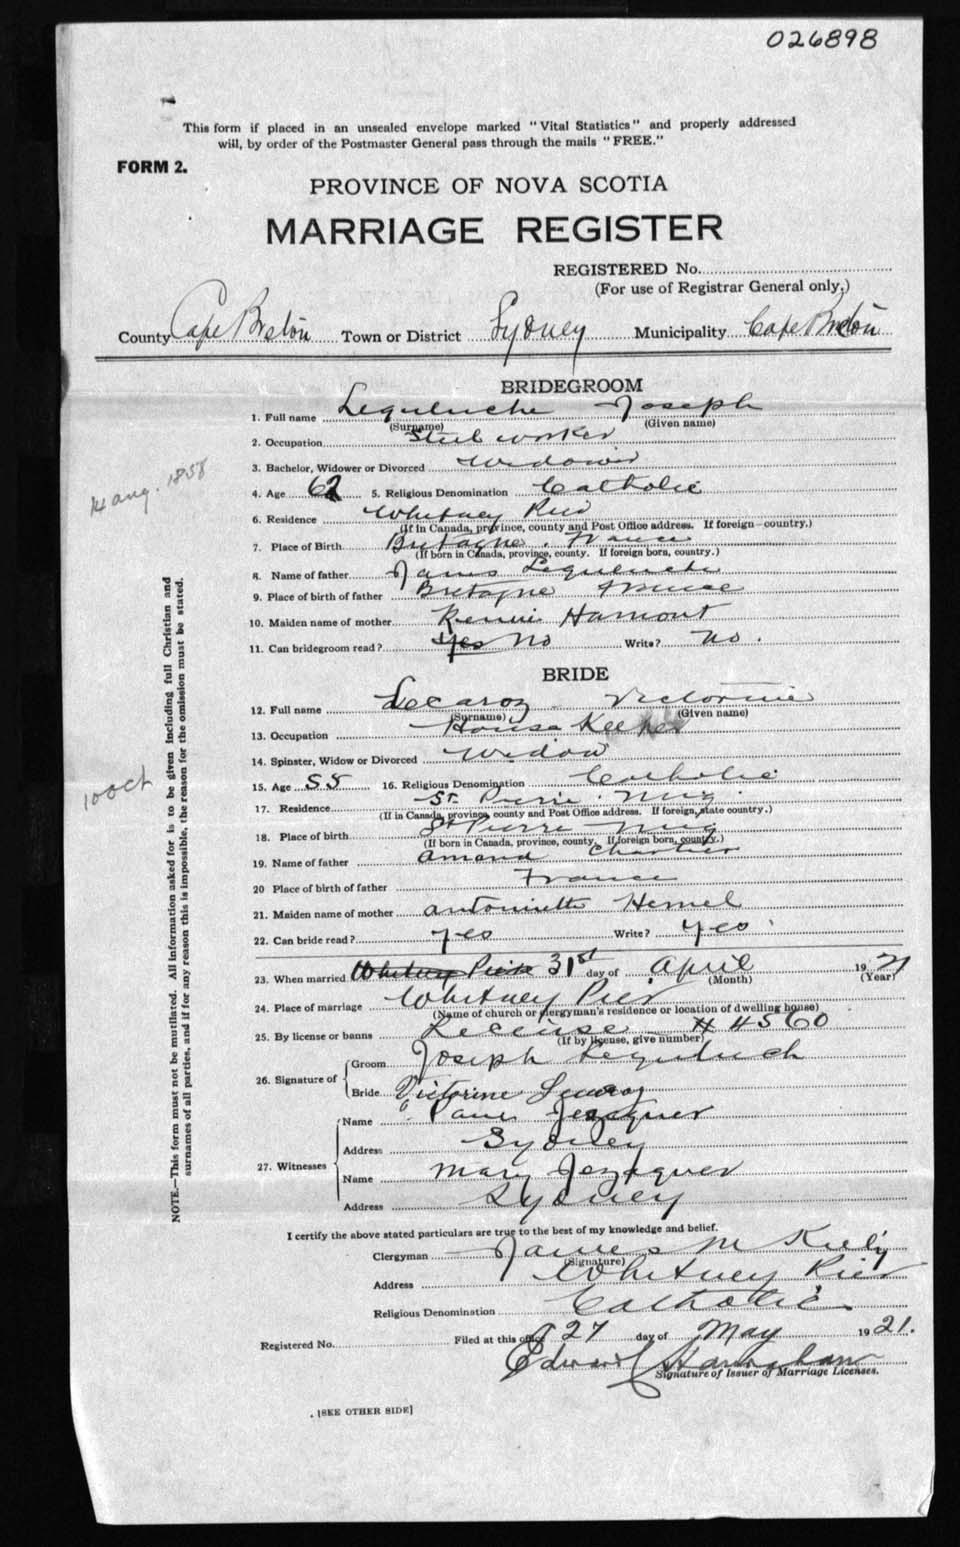 026898
This form if placed in an unsealed envelope marked "Vital Statistics" and properly addressed
will, by order of the Postmaster General pass through the mails "FREE."
FORM 2.
PROVINCE OF NOVA SCOTIA
MARRIAGE REGISTER
REGISTERED No.
(For use of Registrar General only.)
County Cape Breton Town or District Sydney Municipality Cape Breton
BRIDEGROOM
1. Full name Lequluche Joseph
(Surname) (Given name)
2. Occupation Steel worker
3. Bachelor, Widower or Divorced Widower
4. Age 62 5. Religious Denomination Catholic
14 aug. 1858
6. Residence Whitney Pier
(If in Canada, province, county and Post Office address. If foreign—country.)
7. Place of Birth Bretagne, France
(If born in Canada, province, county. If foreign born, country.)
8. Name of father
9. Place of birth of father Bretagne France
10. Maiden name of mother Hamont
11. Can bridegroom read? Yes No Write? No.
BRIDE
12. Full name Lecaroz Victorine
(Surname) (Given name)
13. Occupation House Keeper
14. Spinster, Widow or Divorced Widow
15. Age 55 16. Religious Denomination Catholic
17. Residence St. Pierre Miq.
(If in Canada, province, county and Post Office address. If foreign, state country.)
18. Place of birth St Pierre Miq
(If born in Canada, province, county. If foreign born, country.)
19. Name of father Amand Chartier
20 Place of birth of father France
21. Maiden name of mother Antoinette Hemel
22. Can bride read? yes Write? yes
23. When married Whitney Pier 31st day of April 1921
(Month) (Year)
24. Place of marriage Whitney Pier
(Name of church or clergyman's residence or location of dwelling house)
25. By license or banns License # 4560
(If by license, give number)
26. Signature of
Groom Joseph Lequluch
Bride Victorine
27. Witnesses
Name
Address Sydney
Name Mary Jezequer
Address Sydney
I certify the above stated particulars are true to the best of my knowledge and belief.
Clergyman James M Kiely
(Signature)
Address Whitney Pier
Religious Denomination Catholic
Registered No. Filed at this office 27 day of May 1921.
Edward Hanrahan
Signature of Issuer of Marriage Licenses.
[SEE OTHER SIDE]
NOTE.—This form must not be mutilated. All information asked for is to be given including full Christian and
surnames of all parties, and if for any reason this is impossible, the reason for the omission must be stated.